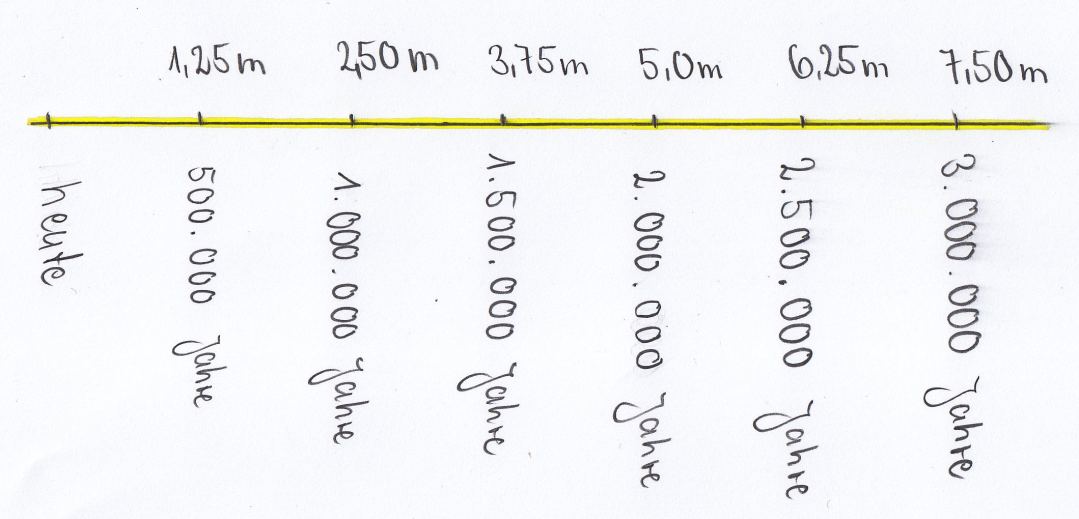 1,25m
2,50 m
3,75m
5,0m
6,25m
7,50m
heute
500.000 Jahre
1.000.000 Jahre
1.500.000 Jahre
2.000.000 Jahre
2.500.000 Jahre
3.000.000 Jahre